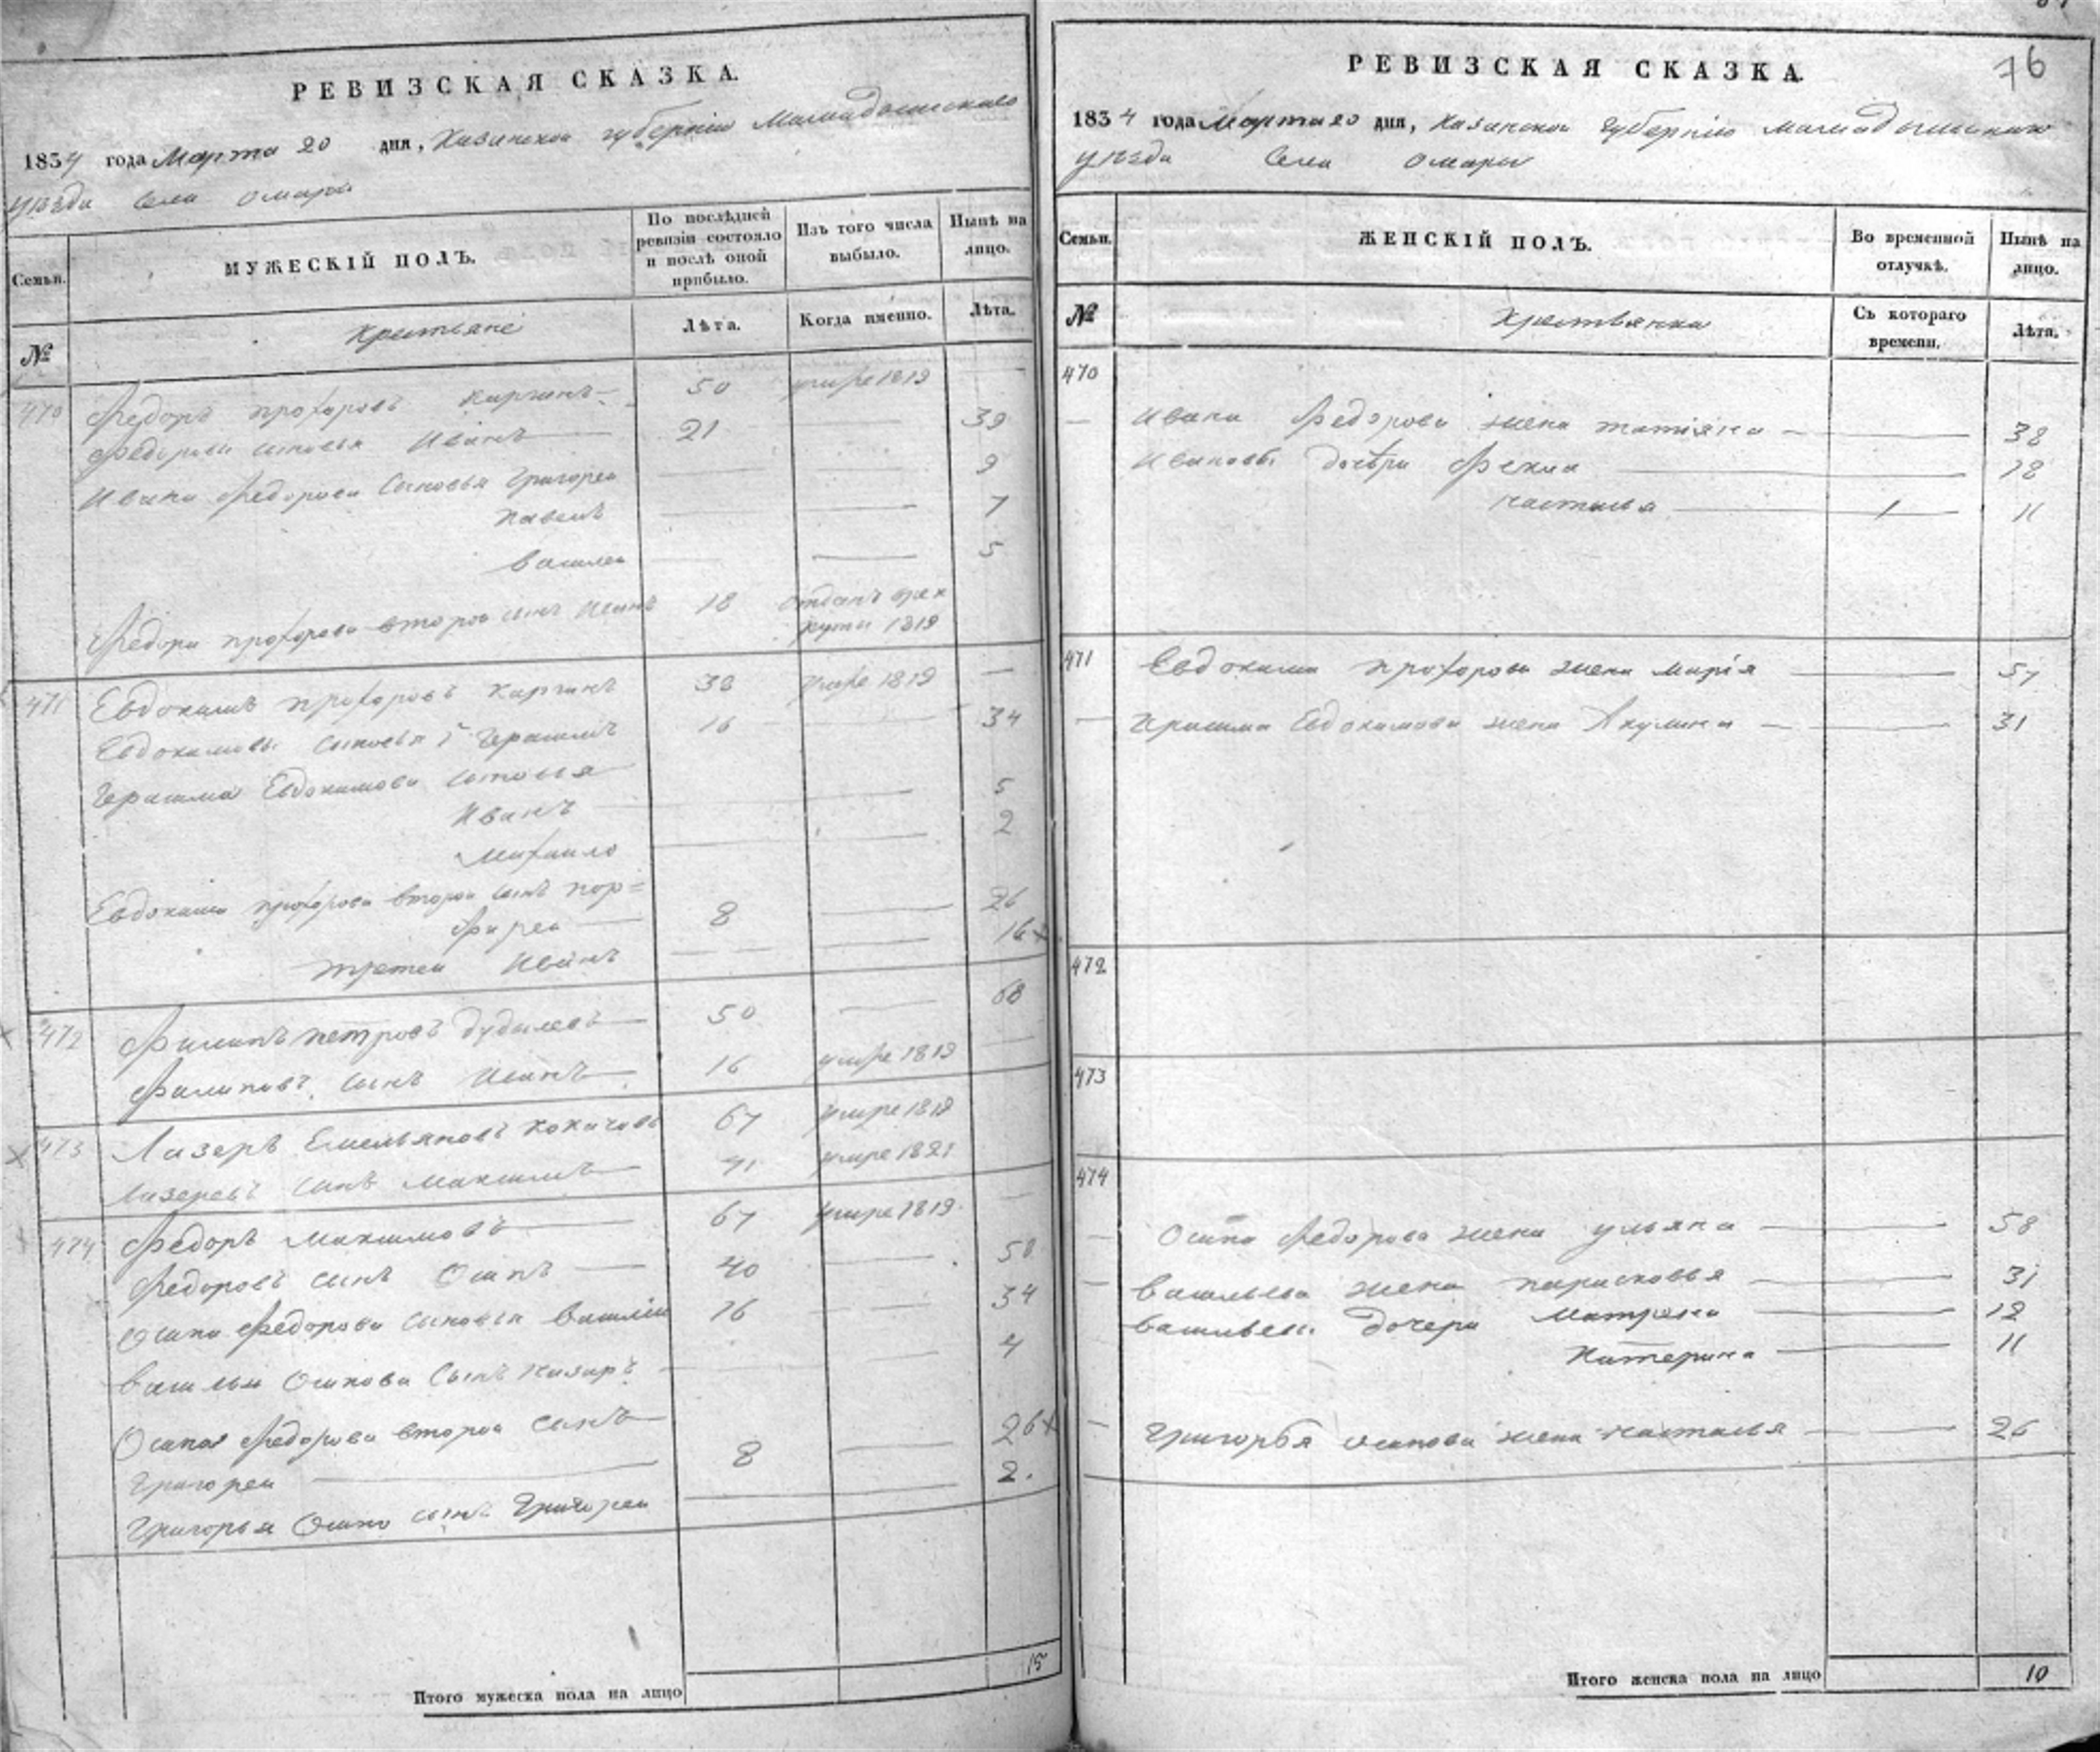 РЕВИЗСКАЯ СКАЗКА.
1834 года Марта 20 дня, Казанской губернии Мамадышскаго
уѣзда Села Омары
Семьи.
МУЖЕСКІЙ ПОЛЪ.
По послѣдней ревизіи состояло и послѣ оной прибыло.
Изъ того числа выбыло.
Нынѣ на лицо.
№
Крестьяне
Лѣта.
Когда именно.
Лѣта.
470 Федоръ Прохоровъ Каргинъ 50 умре 1819
Федоровы сыновья Иванъ 21 39
Ивана Федорова Сыновья Григорей 9
Павелъ 7
Василей 5
Федора Прохорова второй сынъ Иванъ 18 отданъ в рек
руты 1819
471 Евдокимъ Прохоровъ Каргинъ 38 умре 1819 —
Евдокимовы сыновья Герасимъ 16 34
Герасима Евдокимова сыновья
Иванъ 5
Михаило 2
Евдокима Прохорова второй сынъ Пор=
фирей 8 26
третей Иванъ 16 +
472 Филипъ Петровъ 50 68
Филиповъ сынъ Иванъ 16 умре 1819 —
473 Лазерь Емельяновъ 67 умре 1819
Лазеревъ сынъ Максимъ 41 умре 1821
474 Федоръ Максимовъ 67 умре 1819 —
Федоровъ сынъ Осипъ 40 58
Осипа Федорова сыновья Василій 16 34
Василья Осипова Сынъ Назаръ 4
Осипа Федорова второй сынъ
Григорей 8 26 +
Григорья Осипо сынъ Григорей 2.
Итого мужеска пола на лицо 15
76
РЕВИЗСКАЯ СКАЗКА.
1834 года Марта 20 дня, Казанской губернии Мамадышскаго
уѣзда Села Омары
Семьи.
ЖЕНСКІЙ ПОЛЪ.
Во временной отлучкѣ.
Нынѣ на лицо.
№
Крестьянка
Съ котораго времени.
Лѣта.
470
— Ивана Федорова жена Татіяна 38
Ивановы дочери Фекла 18
Настасья 11
471 Евдокима Прохорова жена Марія 57
— Герасима Евдокимова жена Акулина 31
472
473
474
— Осипа Федорова жена Ульяна 58
— Васильева жена Парасковья 31
Васильевы дочери Матрена 12
Катерина 11
— Григорья Осипова жена Настасья 26
Итого женска пола на лицо 10